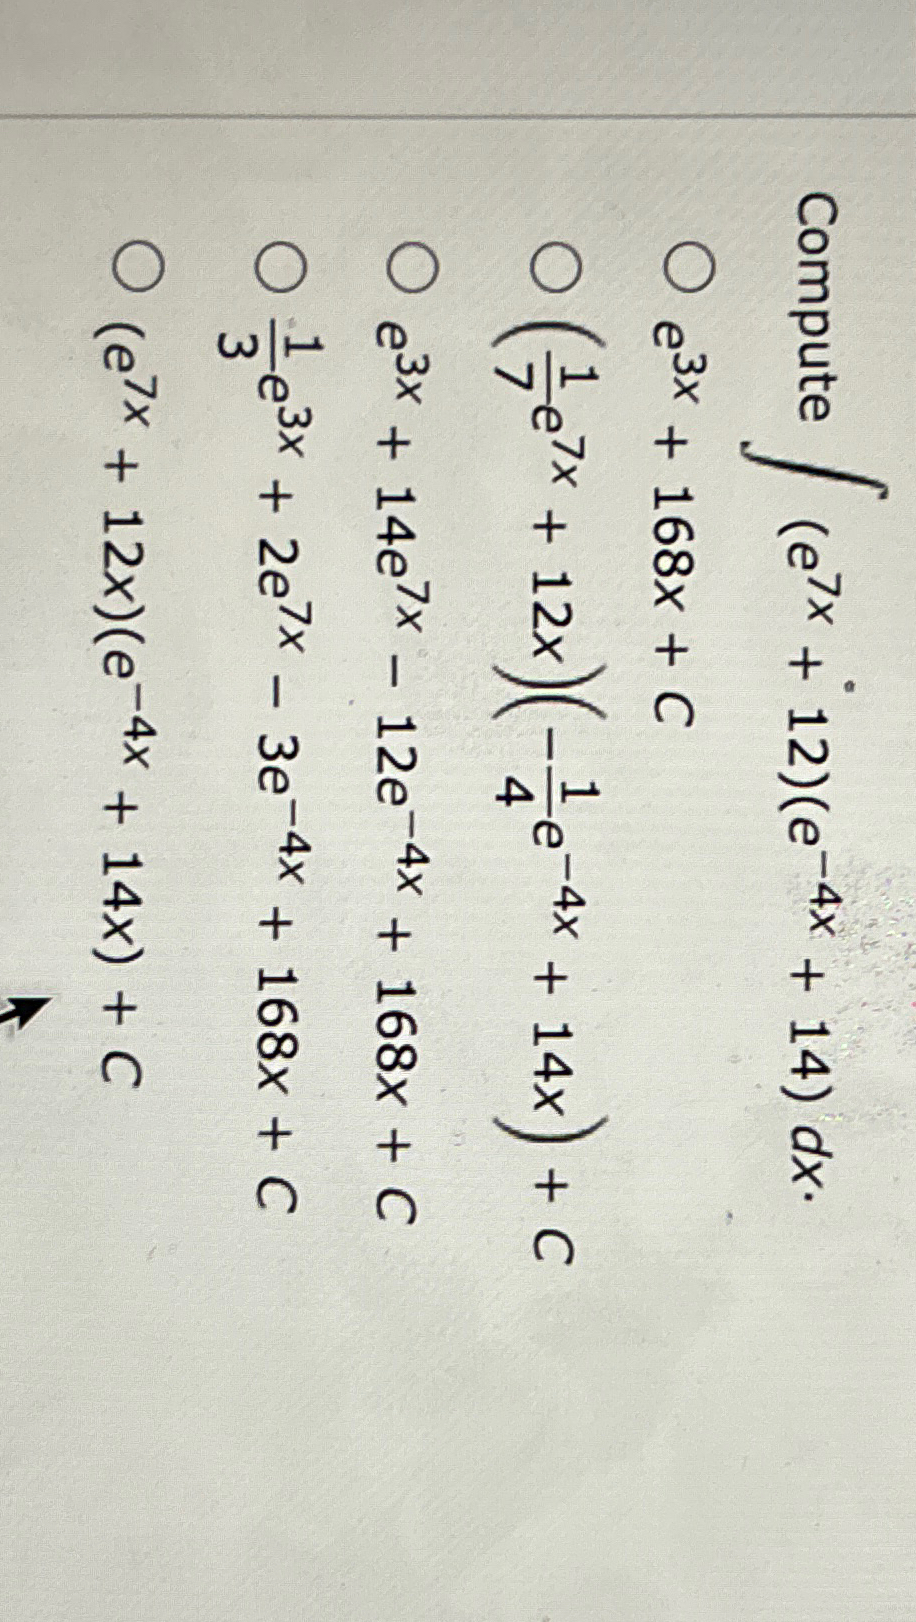 Compute ∫ (e^{7x} + 12)(e^{−4x} + 14) dx.
e^{3x} + 168x + C
(\frac{1}{7}e^{7x} + 12x)(−\frac{1}{4}e^{−4x} + 14x) + C
e^{3x} + 14e^{7x} − 12e^{−4x} + 168x + C
\frac{1}{3}e^{3x} + 2e^{7x} − 3e^{−4x} + 168x + C
(e^{7x} + 12x)(e^{−4x} + 14x) + C